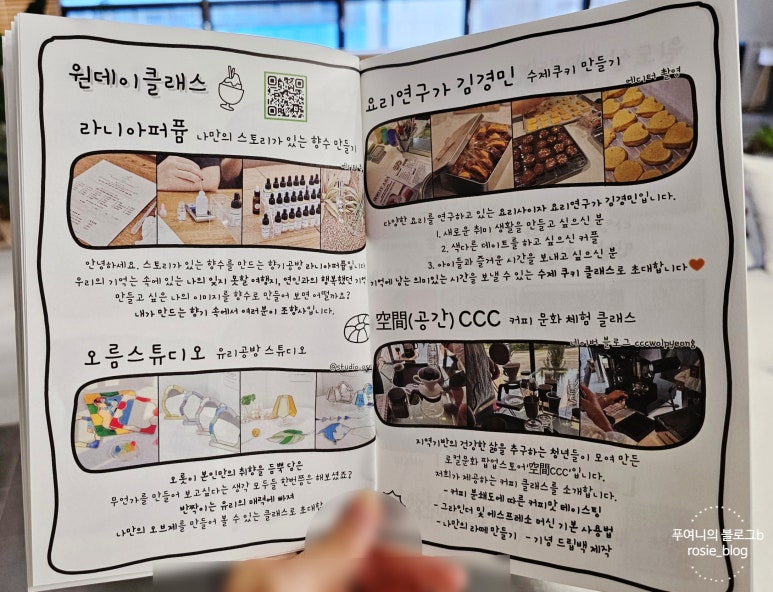 원데이클래스
라니아퍼퓸 나만의 스토리가 있는 향수 만들기
안녕하세요. 스토리가 있는 향수를 만드는 향기공방 라니아퍼퓸입니다.
우리의 기억는 속에 있는 나의 잊지 못할 여행지, 연인과의 행복했던 기억
만들고 싶은 나의 이미지를 향수로 만들어 보면 어떨까요?
내가 만드는 향기 속에서 여러분이 조향사입니다.
오름스튜디오 유리공방 스튜디오
오롯이 본인만의 취향을 듬뿍 담은
무언가를 만들어 보고싶다는 생각 모두들 한번쯤은 해보셨죠?
반짝이는 유리의 매력에 빠져
나만의 오브제를 만들어 볼 수 있는 클래스로 초대합
요리연구가 김경민 수제쿠키 만들기
에디터 촬영
다양한 요리를 연구하고 있는 요리사이자 요리연구가 김경민입니다.
1. 새로운 취미 생활을 만들고 싶으신 분
2. 색다른 데이트를 하고 싶으신 커플
3. 아이들과 즐거운 시간을 보내고 싶으신 분
기억에 남는 의미있는 시간을 보낼 수 있는 수제 쿠키 클래스로 초대합니다
空間(공간) CCC 커피 문화 체험 클래스
네이버 블로그 cccwolpyeong
지역기반의 건강한 삶을 추구하는 청년들이 모여 만든
로컬문화 팝업스토어'空間CCC'입니다.
저희가 제공하는 커피 클래스를 소개합니다.
- 커피 분쇄도에 따른 커피맛 테이스팅
- 그라인더 및 에스프레소 머신 기본 사용법
- 나만의 라떼 만들기 - 기념 드립백 제작
푸여니의 블로그b
rosie_blog